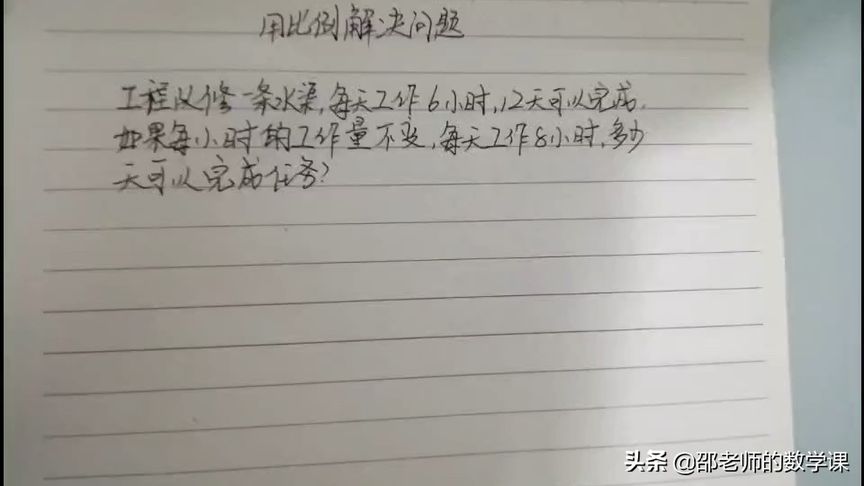 用比例解决问题
工程队修一条水渠,每天工作6小时,12天可以完成.
如果每小时的工作量不变,每天工作8小时,多少
天可以完成任务?
头条 @邵老师的数学课